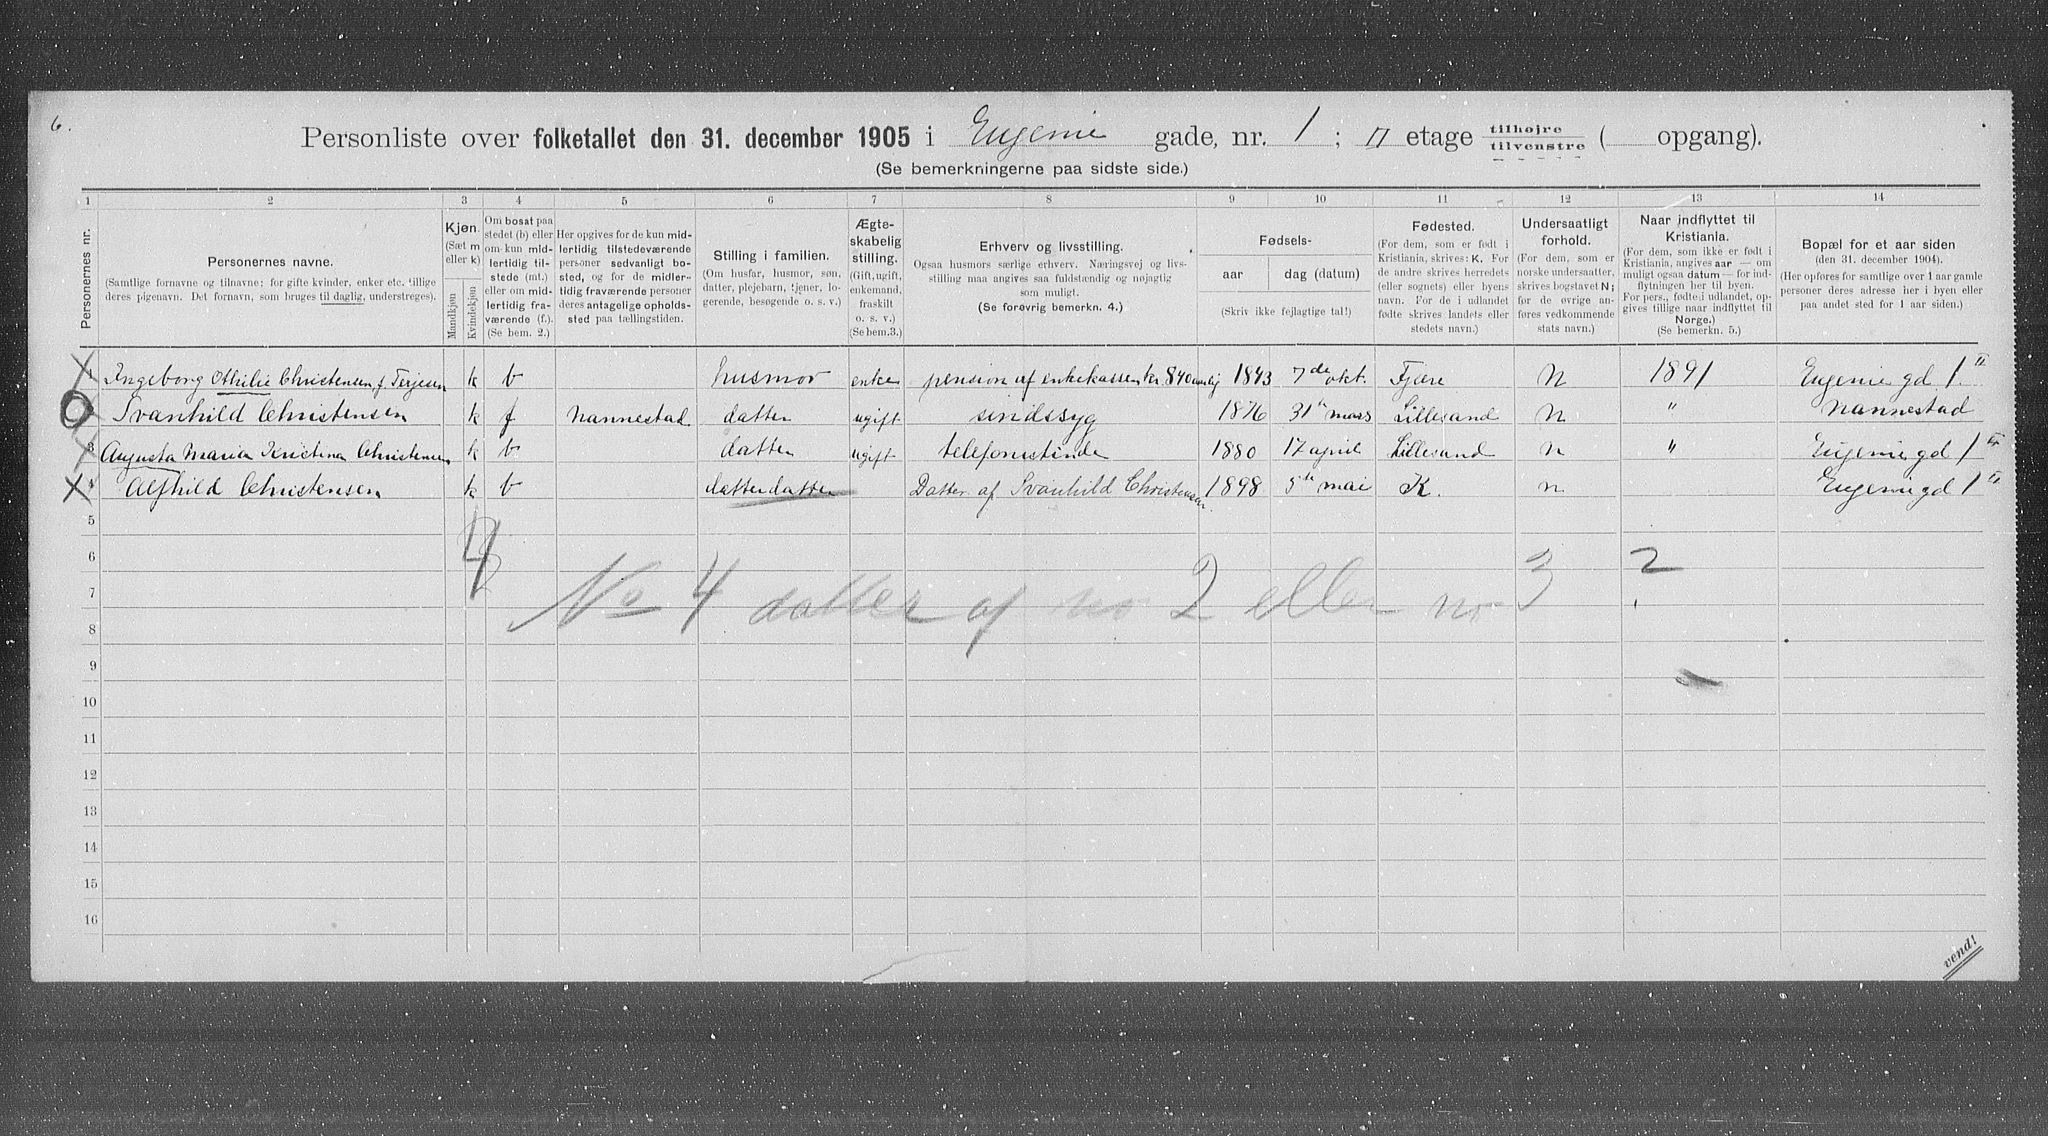 6.
Personliste over folketallet den 31. december 1905 i Eugenie gade, nr. 1 ; II etage tilhøjre tilvenstre ( opgang).
(Se bemerkningerne paa sidste side.)
1 2 3 4 5 6 7 8 9 10 11 12 13 14
Personernes nr.
Personernes navne.
(Samtlige fornavne og tilnavne; for gifte kvinder, enker etc. tillige
deres pigenavn. Det fornavn, som bruges til daglig, understreges).
Kjøn.
(Sæt m
eller k)
Mandkjøn
Kvindekjøn
Om bosat paa
stedet (b) eller
om kun mid-
lertidig tilstede (mt.)
eller om mid-
lertidig fra-
værende (f.).
(Se bem. 2.)
Her opgives for de kun mid-
lertidig tilstedeværende
personer sedvanligt bo-
sted, og for de midler-
tidig fraværende personer
deres antagelige opholds-
sted paa tællingstiden.
Stilling i familien.
(Om husfar, husmor, søn,
datter, plejebarn, tjener, lo-
gerende, besøgende o. s. v.)
Ægte-
skabelig
stilling.
(Gift, ugift,
enkemand,
fraskilt
o. s. v.)
(Se bem.3.)
Erhverv og livsstilling.
Ogsaa husmors særlige erhverv. Næringsvej og livs-
stilling maa angives saa fuldstændig og nøjagtig
som muligt.
(Se forøvrig bemerkn. 4.)
Fødsels-
aar dag (datum)
(Skriv ikke fejlagtige tal!)
Fødested.
(For dem, som er født i
Kristiania, skrives: K. For
de andre skrives herredets
(eller sognets) eller byens
navn. For de i udlandet
fødte skrives landets eller
stedets navn.)
Undersaatligt
forhold.
(For dem, som er
norske undersaatter,
skrives bogstavet N;
for de øvrige an-
føres vedkommende
stats navn.)
Naar indflyttet til
Kristiania.
(For dem, som ikke er født i
Kristiania, angives aar — om
muligt ogsaa datum — for ind-
flytningen her til byen.
For pers., fødte i udlandet, op-
gives tillige naar indflyttet til
Norge.)
(Se bemerkn. 5.)
Bopæl for et aar siden
(den 31. december 1904).
(Her opføres for samtlige over 1 aar gamle
personer deres adresse her i byen eller
paa andet sted for 1 aar siden.)
1 Ingeborg Othilie Christensen f. Terjesen k b husmor enke pension af enkekassen kr. 840 aarlig 1843 7de okt. Fjære N 1891 Eugenie gd 1 II
Svanhild Christensen k f Nannestad datter ugift sindssyg 1876 31te mars Lillesand N " Nannestad
3 Augusta Maria Kristina Christensen k b datter ugift telefonistinde 1880 17 april Lillesand N " Eugenie gd 1 II
4 Alfhild Christensen k b datterdatter Datter af Svanhild Christensen. 1898 5te mai K. N Eugenie gd 1 II
5
6 4 2
7 No 4 datter af no 2 eller no 3
8
9
10
11
12
13
14
15
16
vend!